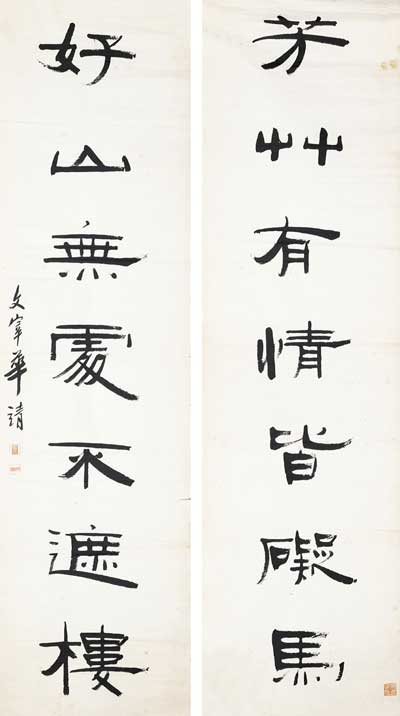 芳艸有情皆礙馬
好山無處不遮樓
文宰華靖